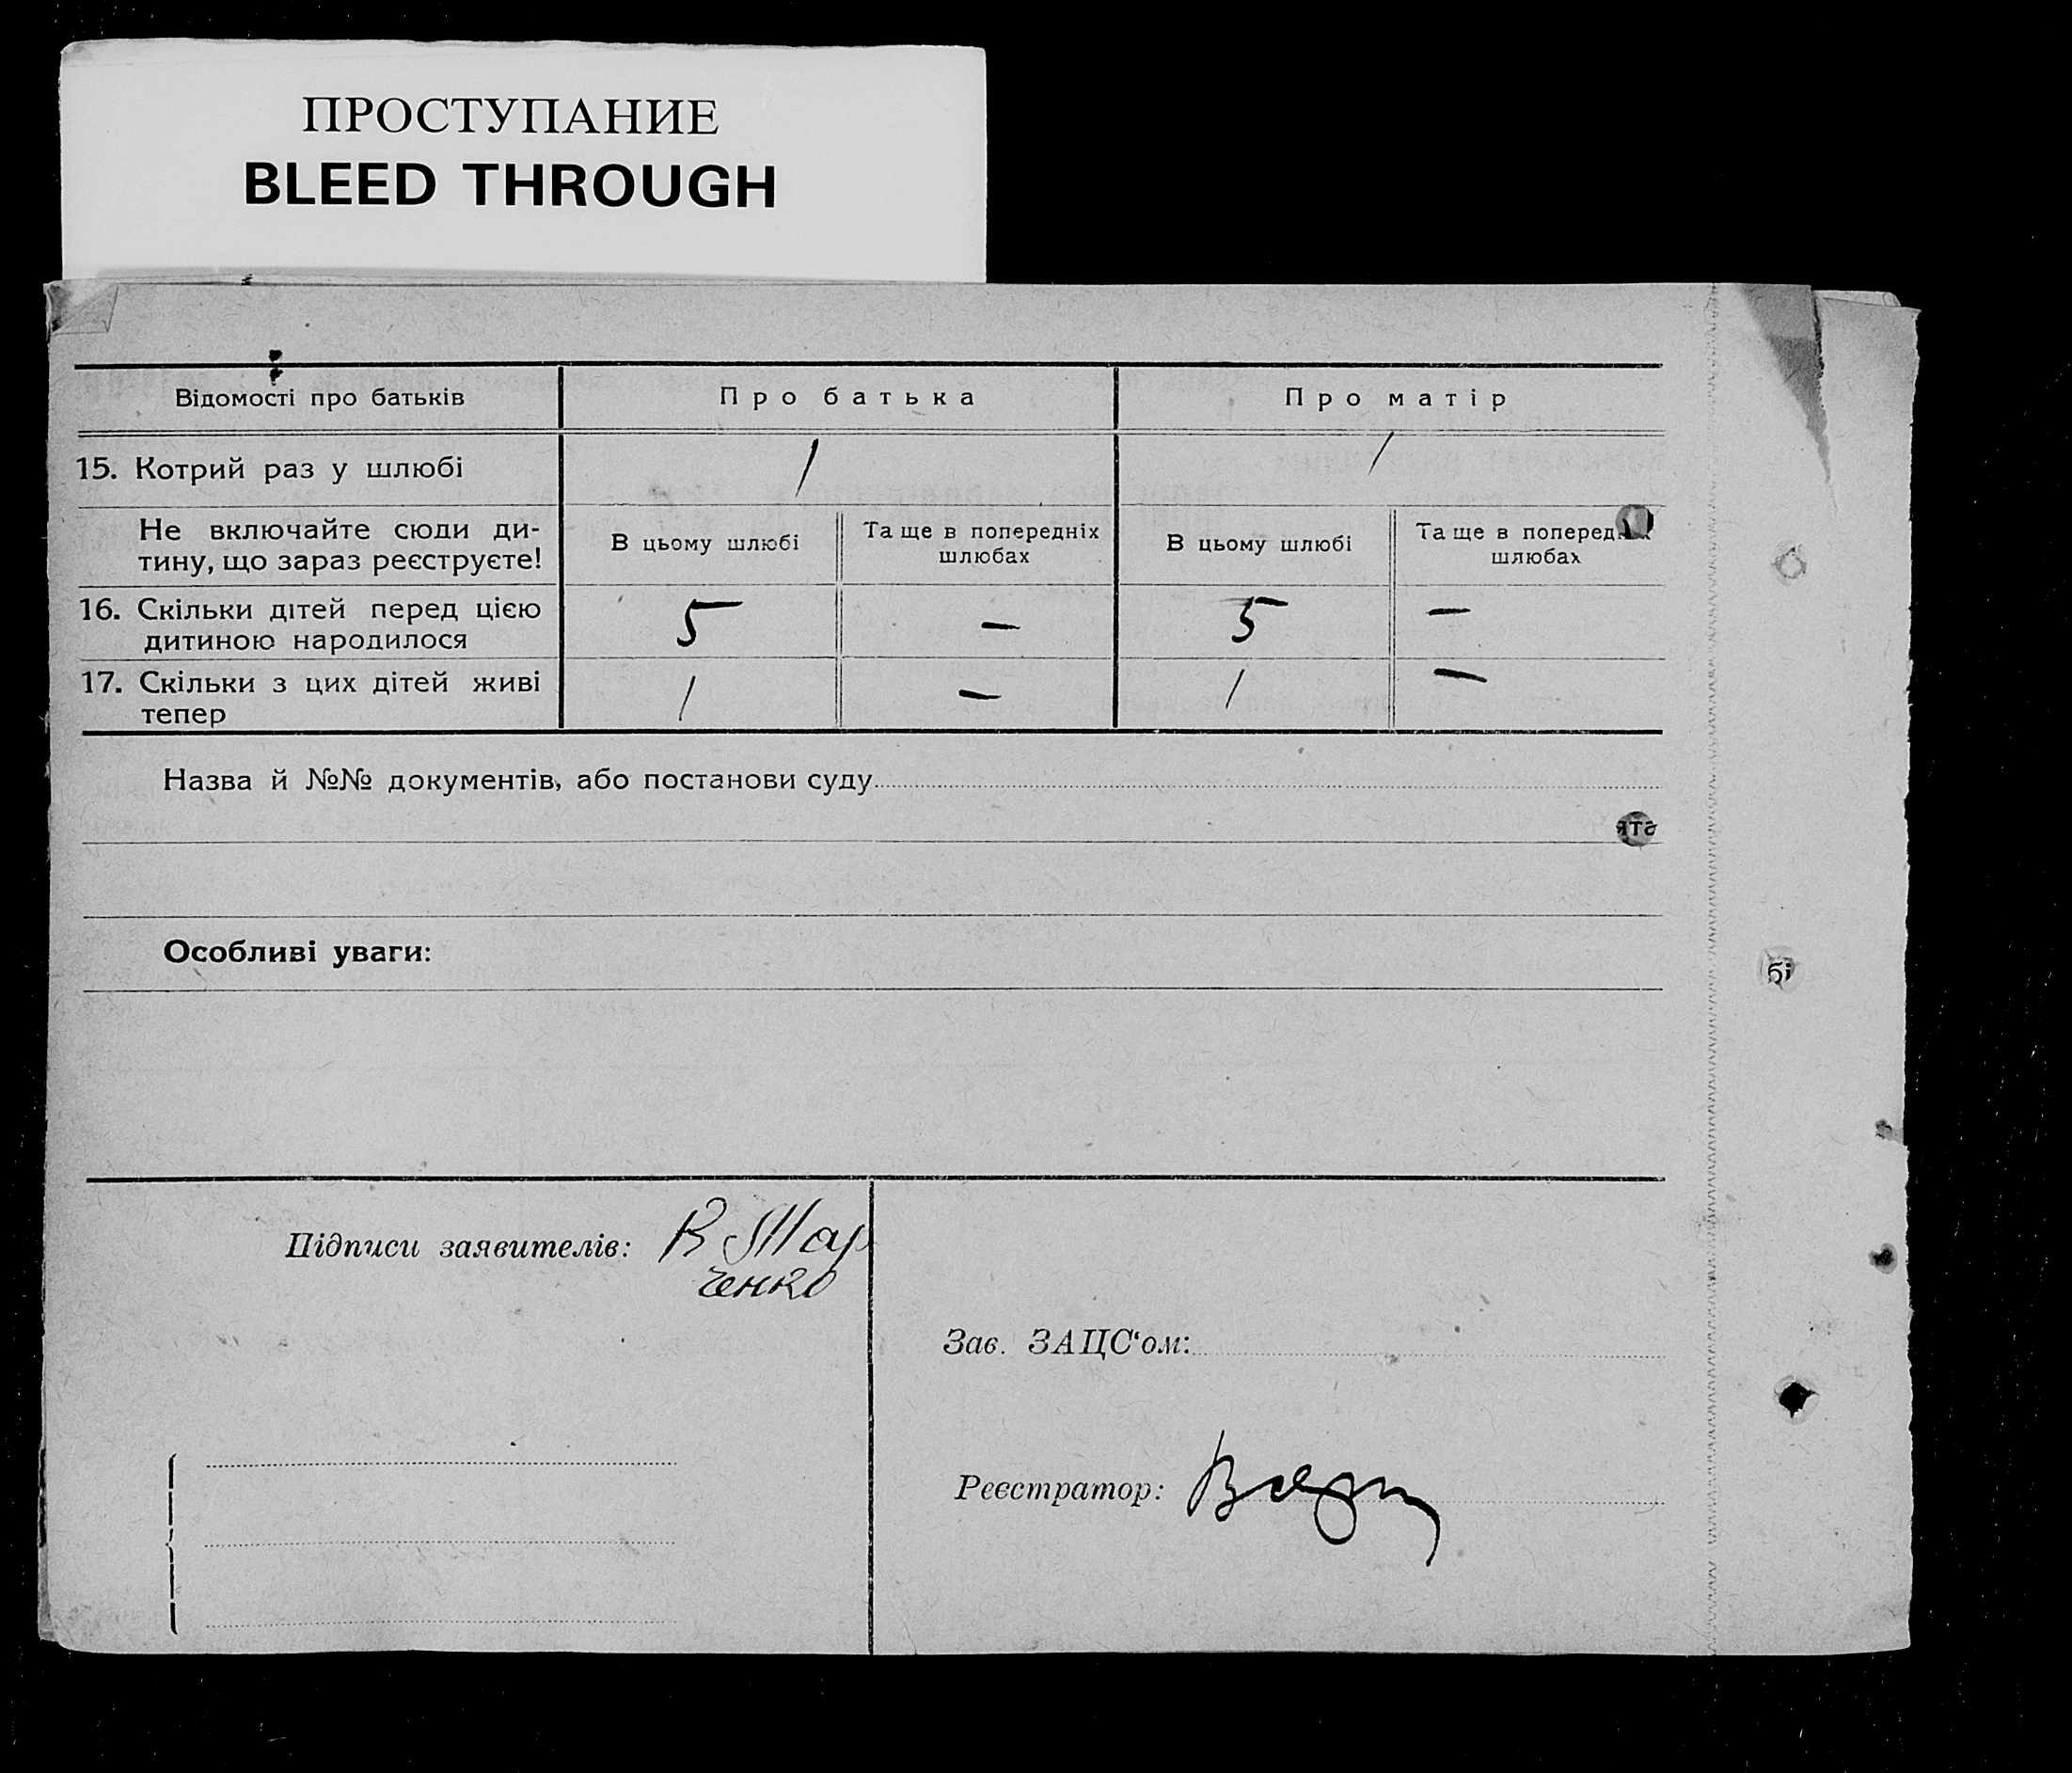 ПРОСТУПАНИЕ
BLEED THROUGH
Відомості про батьків
Про батька
Про матір
15. Котрий раз у шлюбі
1
1
Не включайте сюди ди-
тину, що зараз реєструєте!
В цьому шлюбі
Та ще в попередніх
шлюбах
В цьому шлюбі
Та ще в поперед
шлюбах
16. Скільки дітей перед цією
дитиною народилося
5
—
5
—
17. Скільки з цих дітей живі
тепер
1
—
1
—
Назва й №№ документів, або постанови суду
ята
Особливі уваги:
бі
Підписи заявителів:
ченко
Зав. ЗАЦС'ом:
Реєстратор: